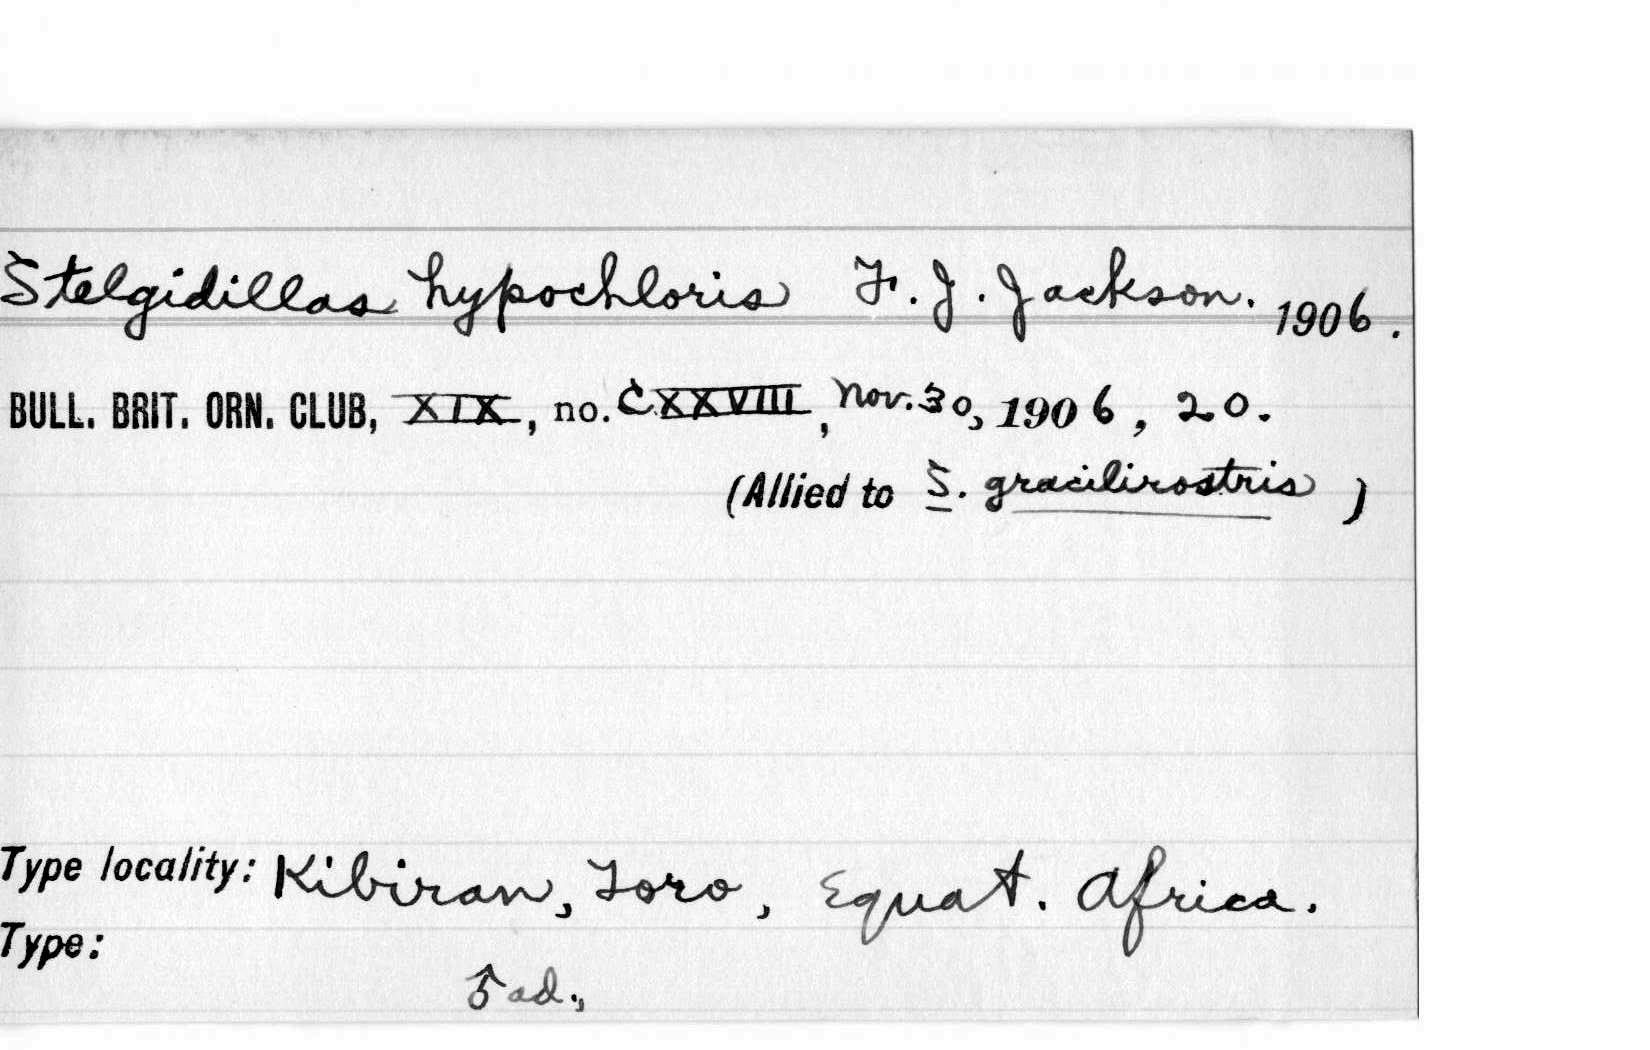 Stelgidillas hypochloris F. J. Jackson. 1906.
BULL. BRIT. ORN. CLUB, XIX, no. CXXVIII, Nov. 30, 1906, 20.
(Allied to S. gracilirostris )
Type locality: Kibiran, Toro, Equat. Africa.
Type:
♂ ad.,